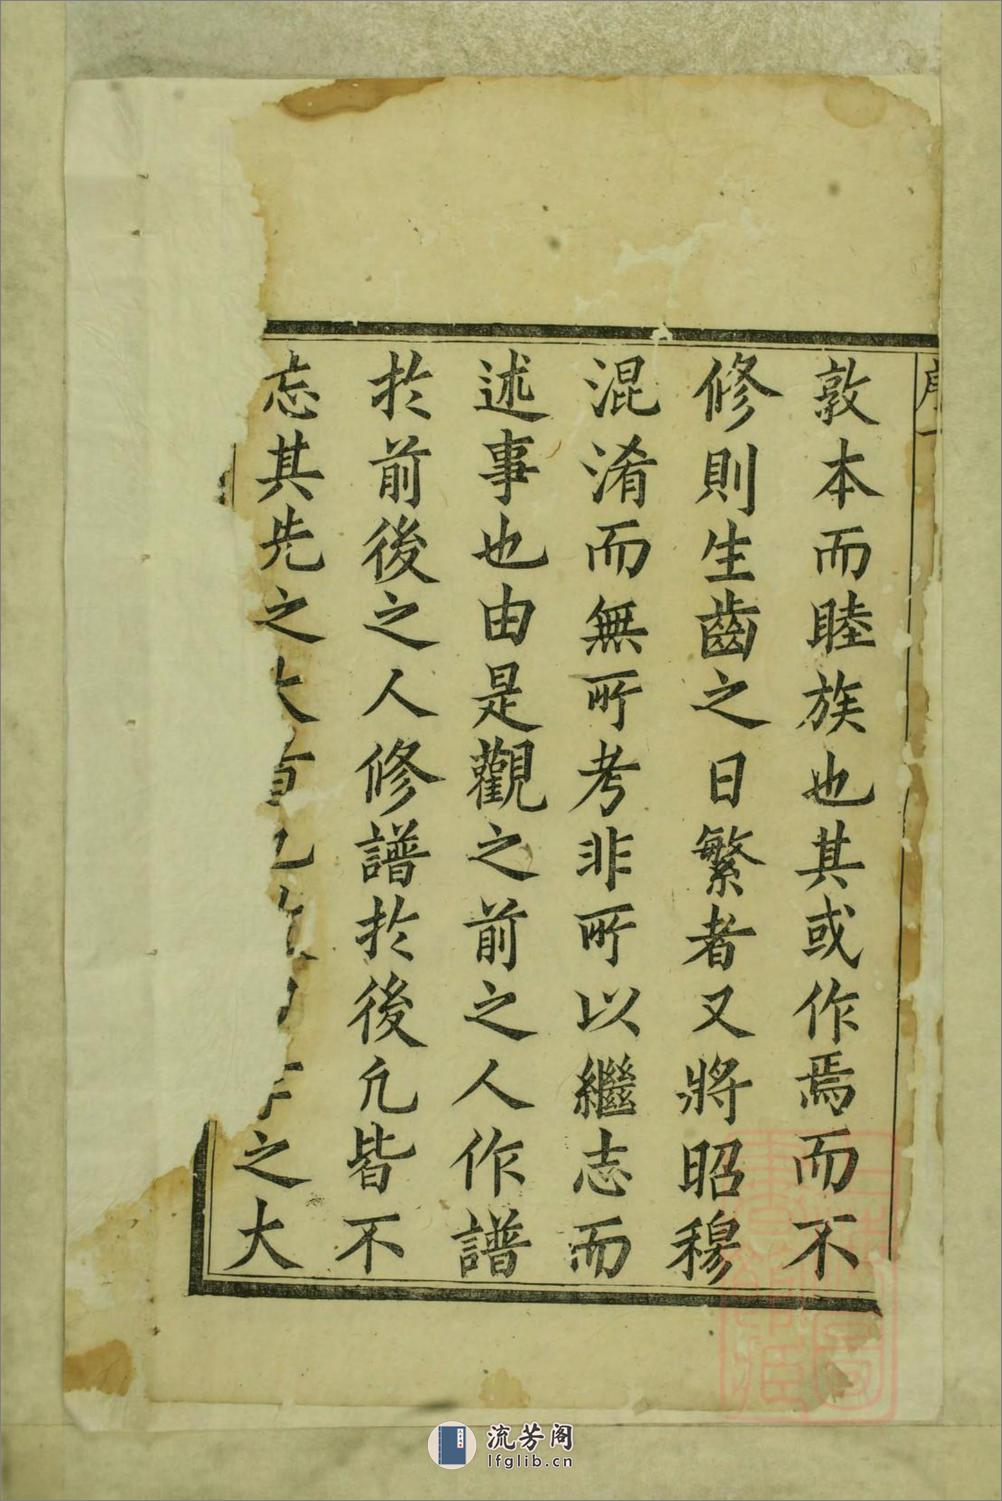 敦本而睦族也其或作焉而不
修則生齒之日繁者又將昭穆
混淆而無所考非所以繼志而
述事也由是觀之前之人作譜
於前後之人修譜於後凢皆不
忘其先之大 之大
流芳阁
lfglib.cn